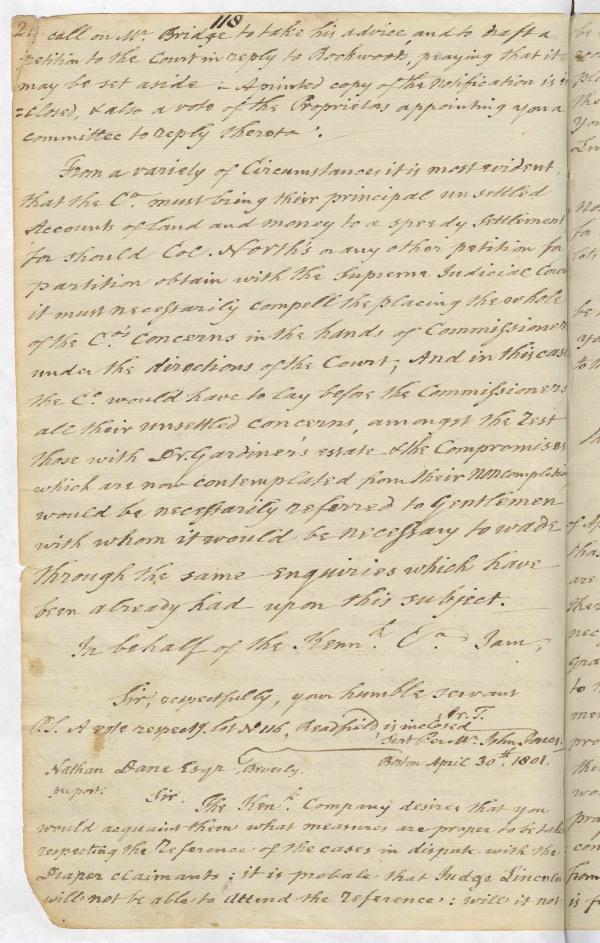 118
call on Mr. Bridge to take his advice and to draft a
petition to the Court in reply to Rockwoods, praying that it
may be set aside - A printed copy of the Notification is in
=closed, & also a vote of the Proprietors appointing you a
committee to reply thereto.
From a variety of Circumstances it is most evident,
that the Co. must bring their principal unsettled
Accounts of land and money to a speedy settlement
for should Col. North's or any other petition for
partition obtain with the Supreme Judicial Court
it must necessarily compell the placing the whole
of the Co's Concerns in the hands of Commissioners
under the directions of the Court; And in this case
the Co. would have to lay before the Commissioners
all their unsettled concerns, amongst the rest
those with Dr. Gardiner's estate & the Compromises
which are now contemplated from their noncompletion
would be necessarily referred to Gentlemen
with whom it would be necessary to wade
through the same enquiries which have
been already had upon this subject.
In behalf of the Kennk. Co. I am,
Sir, respectfully, your humble servant
Ar. T.
P.S. A vote respectg. lot No 116, Readfield, is inclosed
Sent Per Mr. John Jones.
Boston April 30th. 1801.
Nathan Dane Esqr Beverly.
per post.
Sir. The Kenk. Company desires that you
would acquaint them what measures are proper to be take
respecting the Reference of the cases in dispute with the
Draper claimants: it is probale that Judge Lincoln
will not be able to attend the reference: will it not